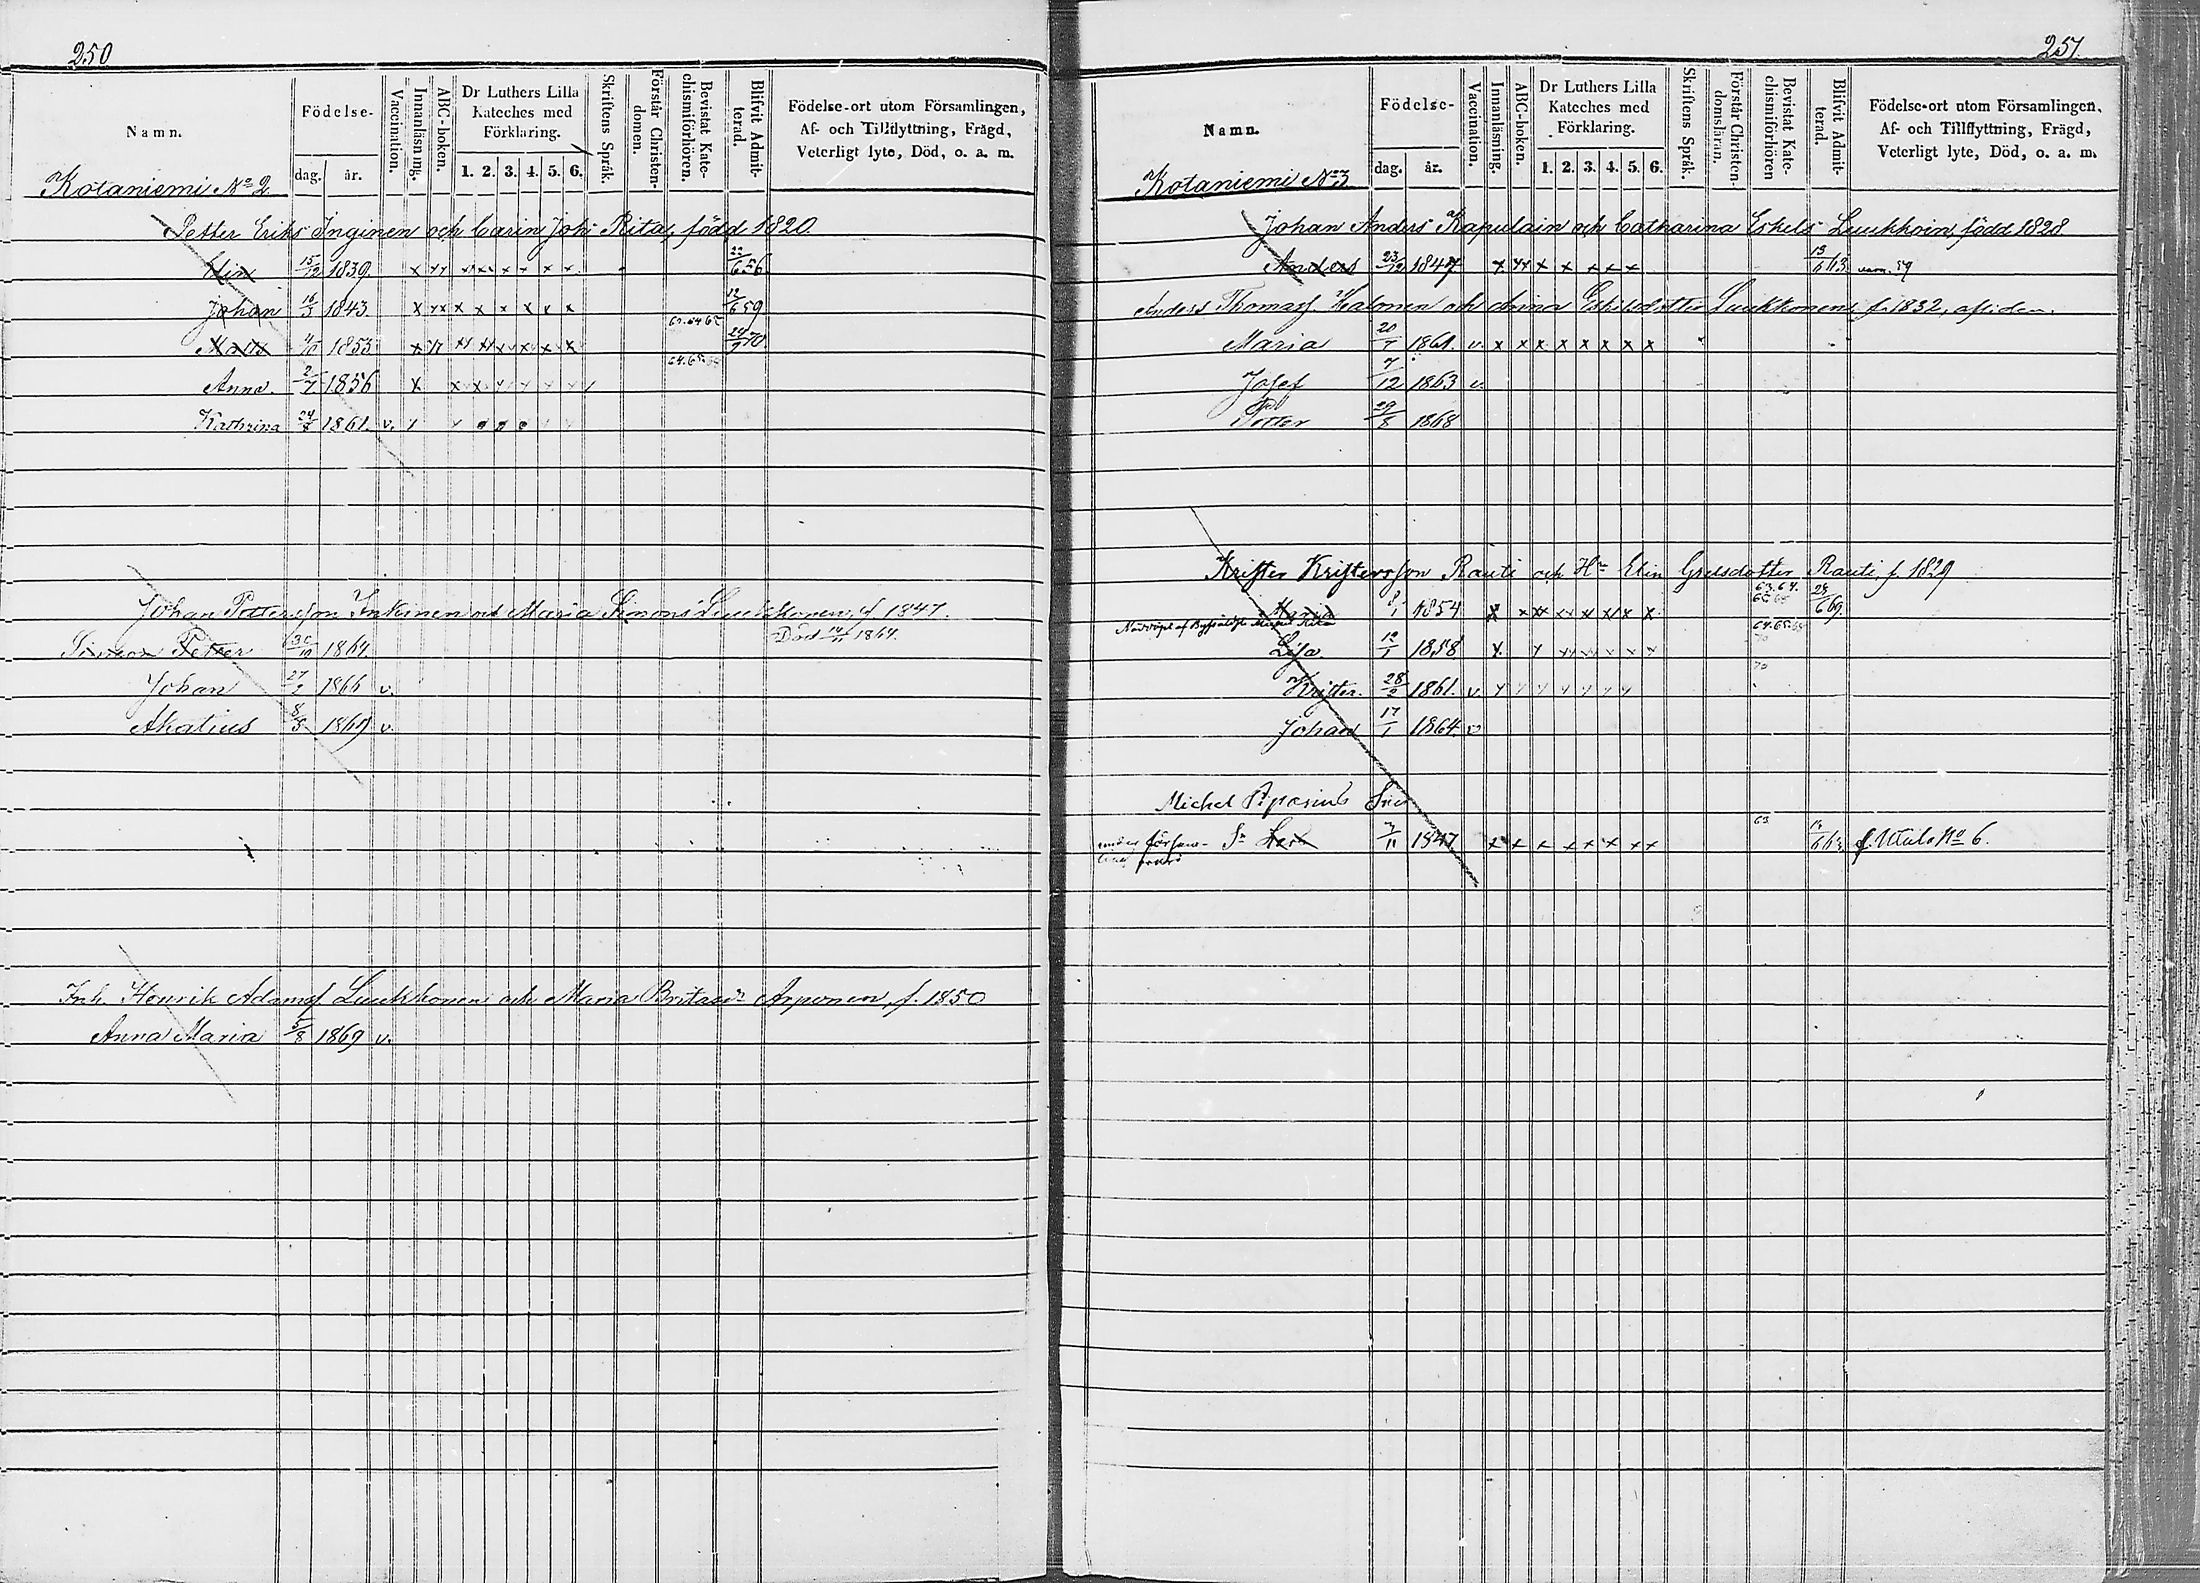 250
Namn.
Födelse-
dag. år.
Vaccination.
Innanläsning.
ABC-boken.
Dr Luthers Lilla Kateches med Förklaring.
1. 2. 3. 4. 5. 6.
Skriftens Språk.
Förstår Christendomen.
Bevistat Katechismiförhören.
Blifvit Admitterad.
Födelse-ort utom Församlingen,
Af- och Tillflyttning, Frägd,
Veterligt lyte, Död, o. a. m.
Kotaniemi No 2
Petter Eriks Inginen och Carin Joh: Rita, född 1820
Elin 15/12 1839. x xx xx xx x x x x 22/6 56
Johan 16/3 1843. x xx x x x x x x 12/6 59
Matts 1853 x 24/9 70
Anna. 2/7 1856 x. x x
Kathrina 1861. v.
Johan Pettersson Inkinen och Maria Simons Luukkonen, f 1847.
Simon Petter 30/10 1864. Död 14/11 1864.
Johan 27/2 1866 v.
Akatius 8/8 1869 v.
Inh. Henrik Adamsf Luukkonen och Maria Arponen, f. 1850
Anna Maria 5/8 1869 v.
251.
Namn.
Födelse-
dag. år.
Vaccination.
Innanläsning.
ABC-boken.
Dr Luthers Lilla Kateches med Förklaring.
1. 2. 3. 4. 5. 6.
Skriftens Språk.
Förstår Christendomsläran.
Bevistat Katechismiförhören
Blifvit Admitterad.
Födelse-ort utom Församlingen,
Af- och Tillflyttning, Frägd,
Veterligt lyte, Död, o. a. m.
Kotaniemi No 3
Johan Anders Kapulain och Catharina Eskels Luukkoin, född 1828
Anders 23/12 1847 x xx x x x x x 13/6 63
Anders Thomasf. Halonen och Anna Eskilsdotter Luukkonen f. 1832, afliden.
Maria 20/7 1861. v. x x x x x x x x
Josef 7/12 1863 v.
Petter 29/8 1868
Krister Kristersson Rauti och Hu Elin Grelsdotter Rauti f. 1829
Maria 8/1 1854 x x xx xx x xx x x 63.64. 28/6 69.
Lisa 12/1 1858. x. 64.65. 70
Krister. 28/2 1861. v 70
Johan 17/1 1864. v
Michel Piposius
1847 x x x x x x x x 63 No 6.